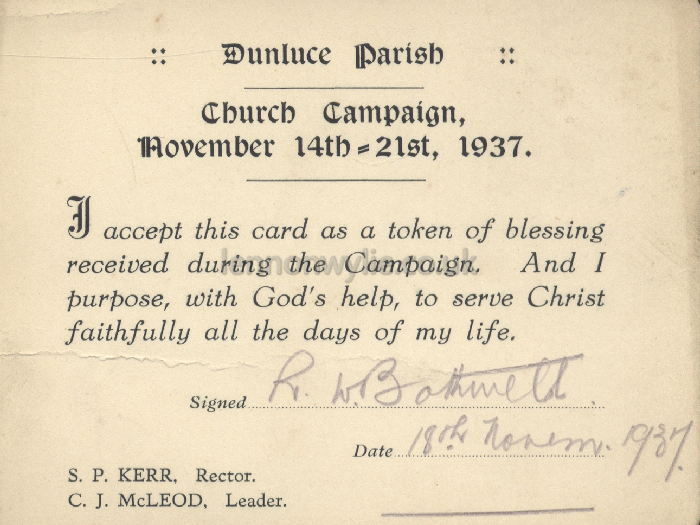 :: Dunluce Parish ::
Church Campaign,
November 14th-21st, 1937.
I accept this card as a token of blessing
received during the Campaign. And I
purpose, with God's help, to serve Christ
faithfully all the days of my life.
Signed R. W. Bothwell.
Date 18th Novem. 1937.
S. P. KERR, Rector.
C. J. McLEOD, Leader.
lennonwylie.co.uk